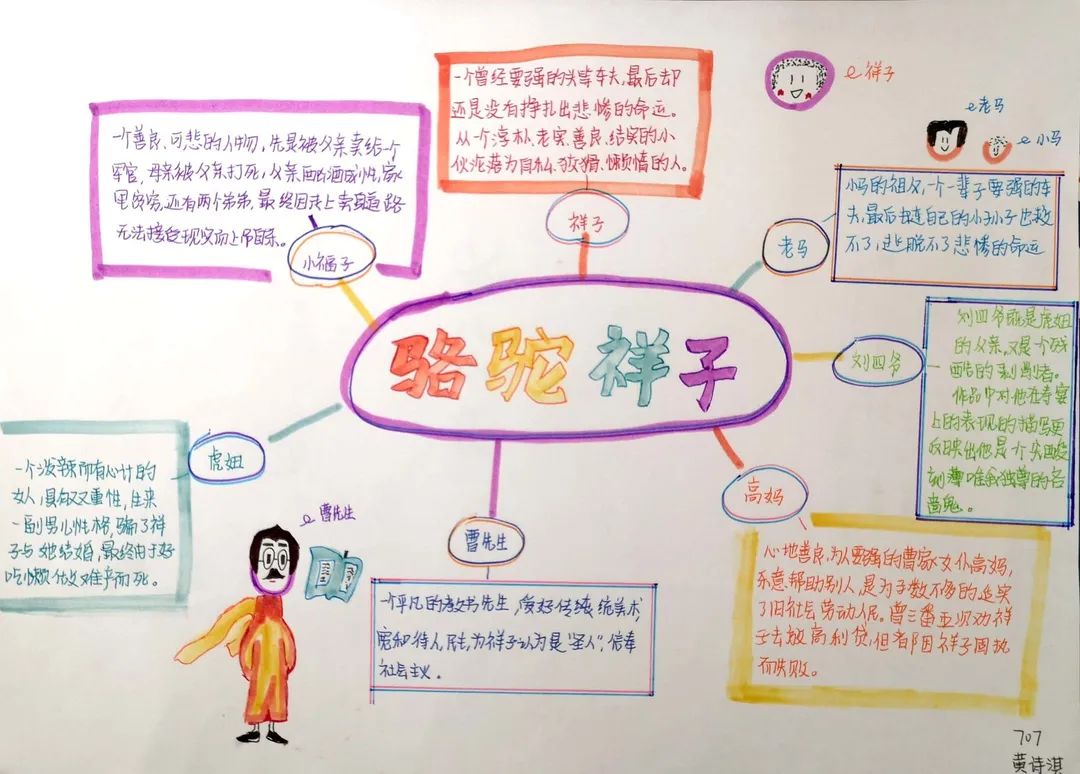 骆驼祥子
祥子
一个曾经要强的头等车夫、最后却
还是没有挣扎出悲惨的命运。
从一个淳朴、老实、善良、结实的小
伙沦落为自私、狡猾、懒惰的人。
祥子
老马
小马
老马
小马的祖父,一个一辈子要强的车
夫,最后却连自己的小孙子也救
不了,逃脱不了悲惨的命运
刘四爷
刘四爷既是虎妞
的父亲,又是个残
酷的剥削者。
作品中对他在寿宴
上的表现的描写更
反映出他是个
刻薄唯我独尊的吝
啬鬼。
高妈
心地善良,为人要强的曹家女仆高妈,
乐意帮助别人,是为子数不多的
了旧社会劳动人民。曾三番五次劝祥
子去放高利贷,但都因祥子固执
而失败。
曹先生
一个平凡的教书先生,爱好传统美术,
宽和待人,为祥子认为是“圣人”,信奉
社会主义。
曹先生
虎妞
一个泼辣而有心计的
女人,具有双重性,生来
一副男儿性格,骗了祥
子与她结婚,最终由于好
吃懒做难产而死。
小福子
一个善良、可悲的人物,先是被父亲卖给一个
军官,母亲被父亲打死,父亲酗酒成性,家
里贫穷,还有两个弟弟,最终因走上卖
无法接受现实而上吊自杀。
707
黄诗淇